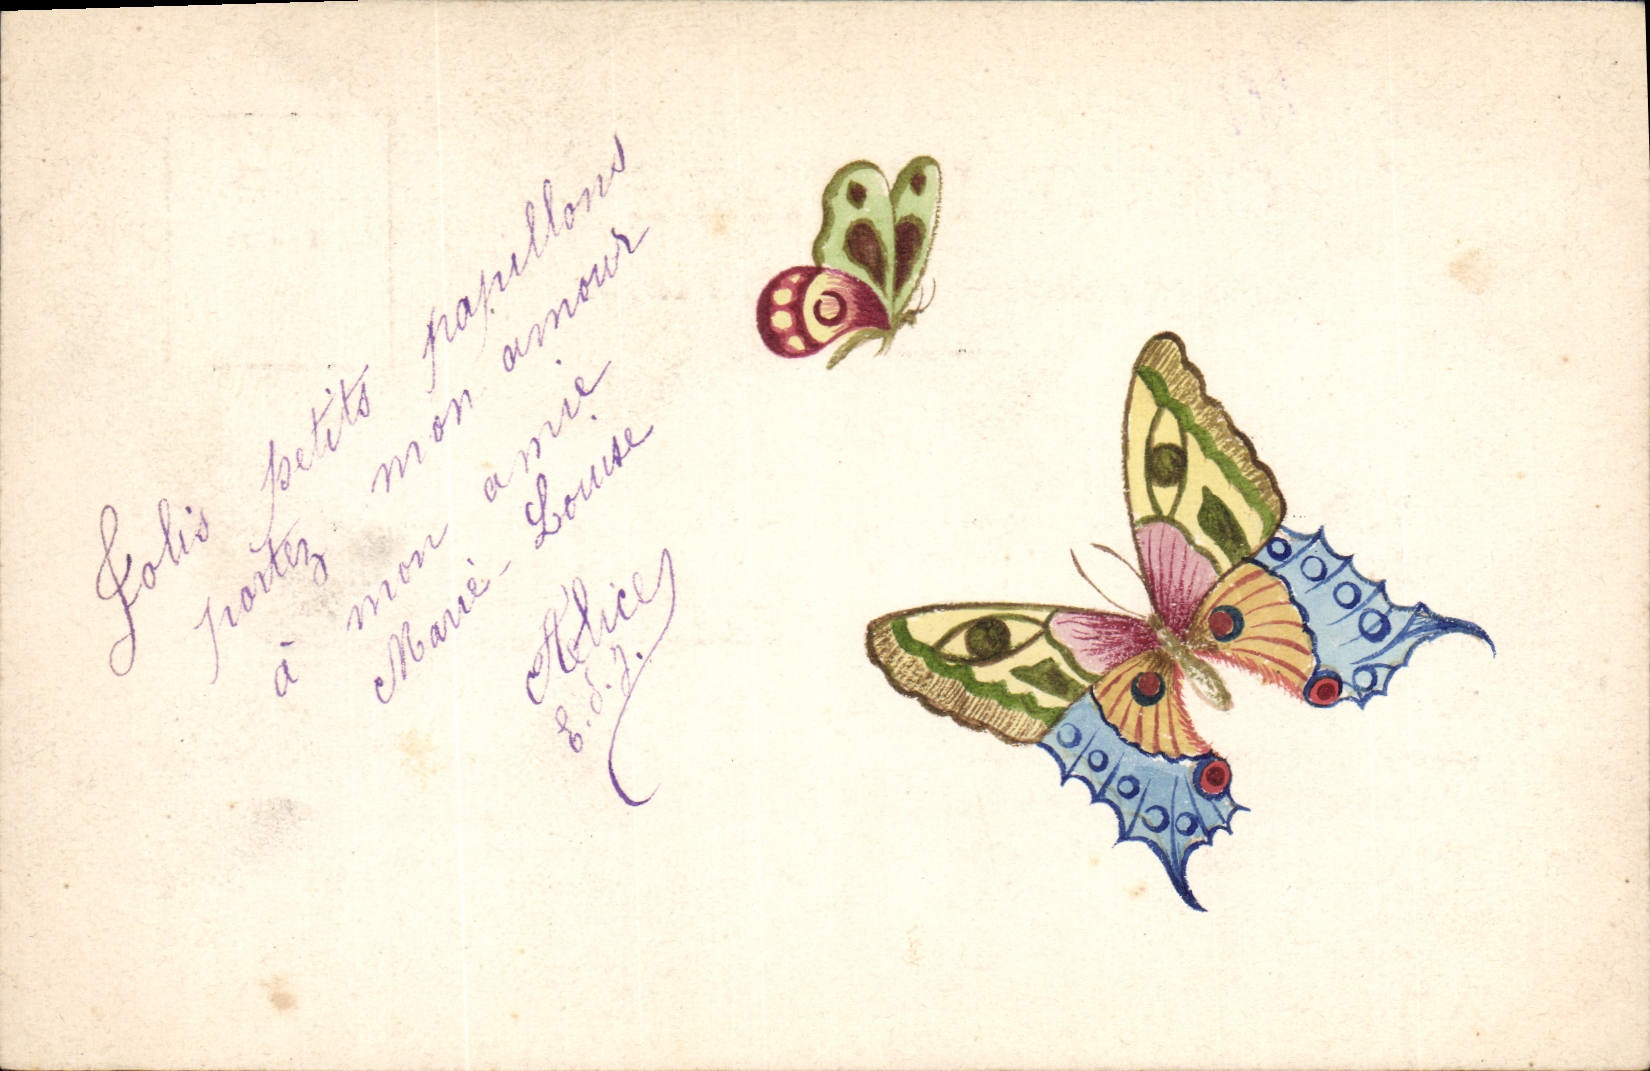 Jolis petits papillons
portez mon amour
à mon amie
Marie-Louise
Alice
E. d. J.